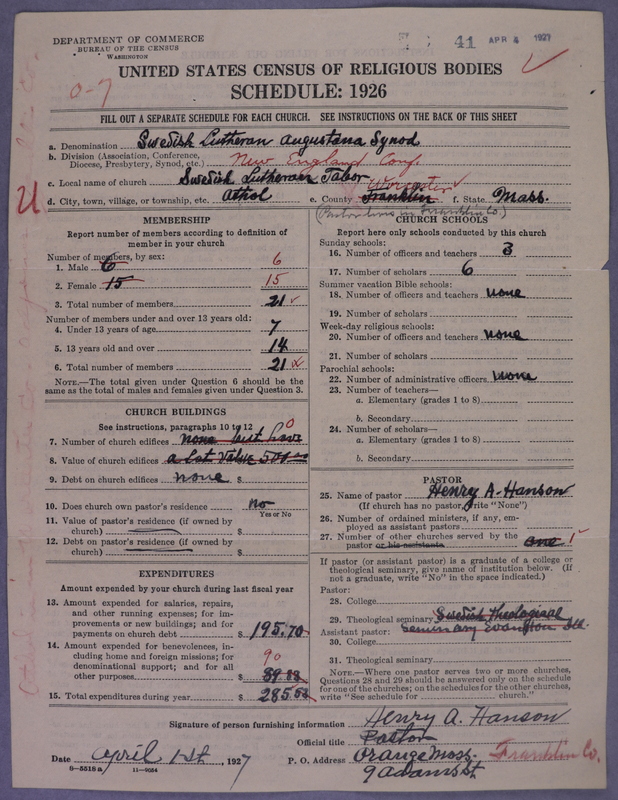 DEPARTMENT OF COMMERCE
BUREAU OF THE CENSUS
WASHINGTON
41 APR 4 1927
UNITED STATES CENSUS OF RELIGIOUS BODIES
0-7
SCHEDULE: 1926
FILL OUT A SEPARATE SCHEDULE FOR EACH CHURCH. SEE INSTRUCTIONS ON THE BACK OF THIS SHEET
a. Denomination Swedish Lutheran Augustana Synod
b. Division (Association, Conference, Diocese, Presbytery, Synod, etc.) New England Conf.
c. Local name of church Swedish Lutheran Tabor
Worcester
d. City, town, village, or township, etc. Athol e. County Franklin f. State Mass.
(Pastor lives in Franklin Co.)
MEMBERSHIP
Report number of members according to definition of
member in your church
Number of members, by sex:
1. Male 6 6
2. Female 15 15
3. Total number of members 21
Number of members under and over 13 years old:
4. Under 13 years of age 7
5. 13 years old and over 14
6. Total number of members 21
NOTE.—The total given under Question 6 should be
same as the total of males and females given under Question 3.
CHURCH BUILDINGS
See instructions, paragraphs 10 to 12
7. Number of church edifices none but have 0
8. Value of church edifices a Lot Value 500
9. Debt on church edifices none $
10. Does church own pastor's residence no
Yes or No
11. Value of pastor's residence (if owned by
church) $
12. Debt on pastor's residence (if owned by
church) $
EXPENDITURES
Amount expended by your church during last fiscal year
13. Amount expended for salaries, repairs,
and other running expenses; for im-
provements or new buildings; and for
payments on church debt $ 195.70
14. Amount expended for benevolences, in-
cluding home and foreign missions; for
denominational support; and for all
other purposes $ 89.88
90
15. Total expenditures during year $ 285.58
CHURCH SCHOOLS
Report here only schools conducted by this church
Sunday schools:
16. Number of officers and teachers 3
17. Number of scholars 6
Summer vacation Bible schools:
18. Number of officers and teachers none
19. Number of scholars
Week-day religious schools:
20. Number of officers and teachers none
21. Number of scholars
Parochial schools:
22. Number of administrative officers none
23. Number of teachers—
a. Elementary (grades 1 to 8)
b. Secondary
24. Number of scholars—
a. Elementary (grades 1 to 8)
b. Secondary
PASTOR
25. Name of pastor Henry A. Hanson
(If church has no pastor, write "None")
26. Number of ordained ministers, if any, em-
ployed as assistant pastors
27. Number of other churches served by the
pastor or his assistants one 1
If pastor (or assistant pastor) is a graduate of a college or
theological seminary, give name of institution below. (If
not a graduate, write "No" in the space indicated.)
Pastor:
28. College
29. Theological seminary Swedish Theological
Seminary Evanston Ill.
Assistant pastor:
30. College
31. Theological seminary
NOTE.—Where one pastor serves two or more churches,
Questions 28 and 29 should be answered only on the schedule
for one of the churches; on the schedules for the other churches,
write "See schedule for church."
Signature of person furnishing information Henry A. Hanson
Official title Pastor
Date April 1st, 1927 P. O. Address Orange Mass. Franklin Co.
9 Adams St.
6—5518a 11—9084